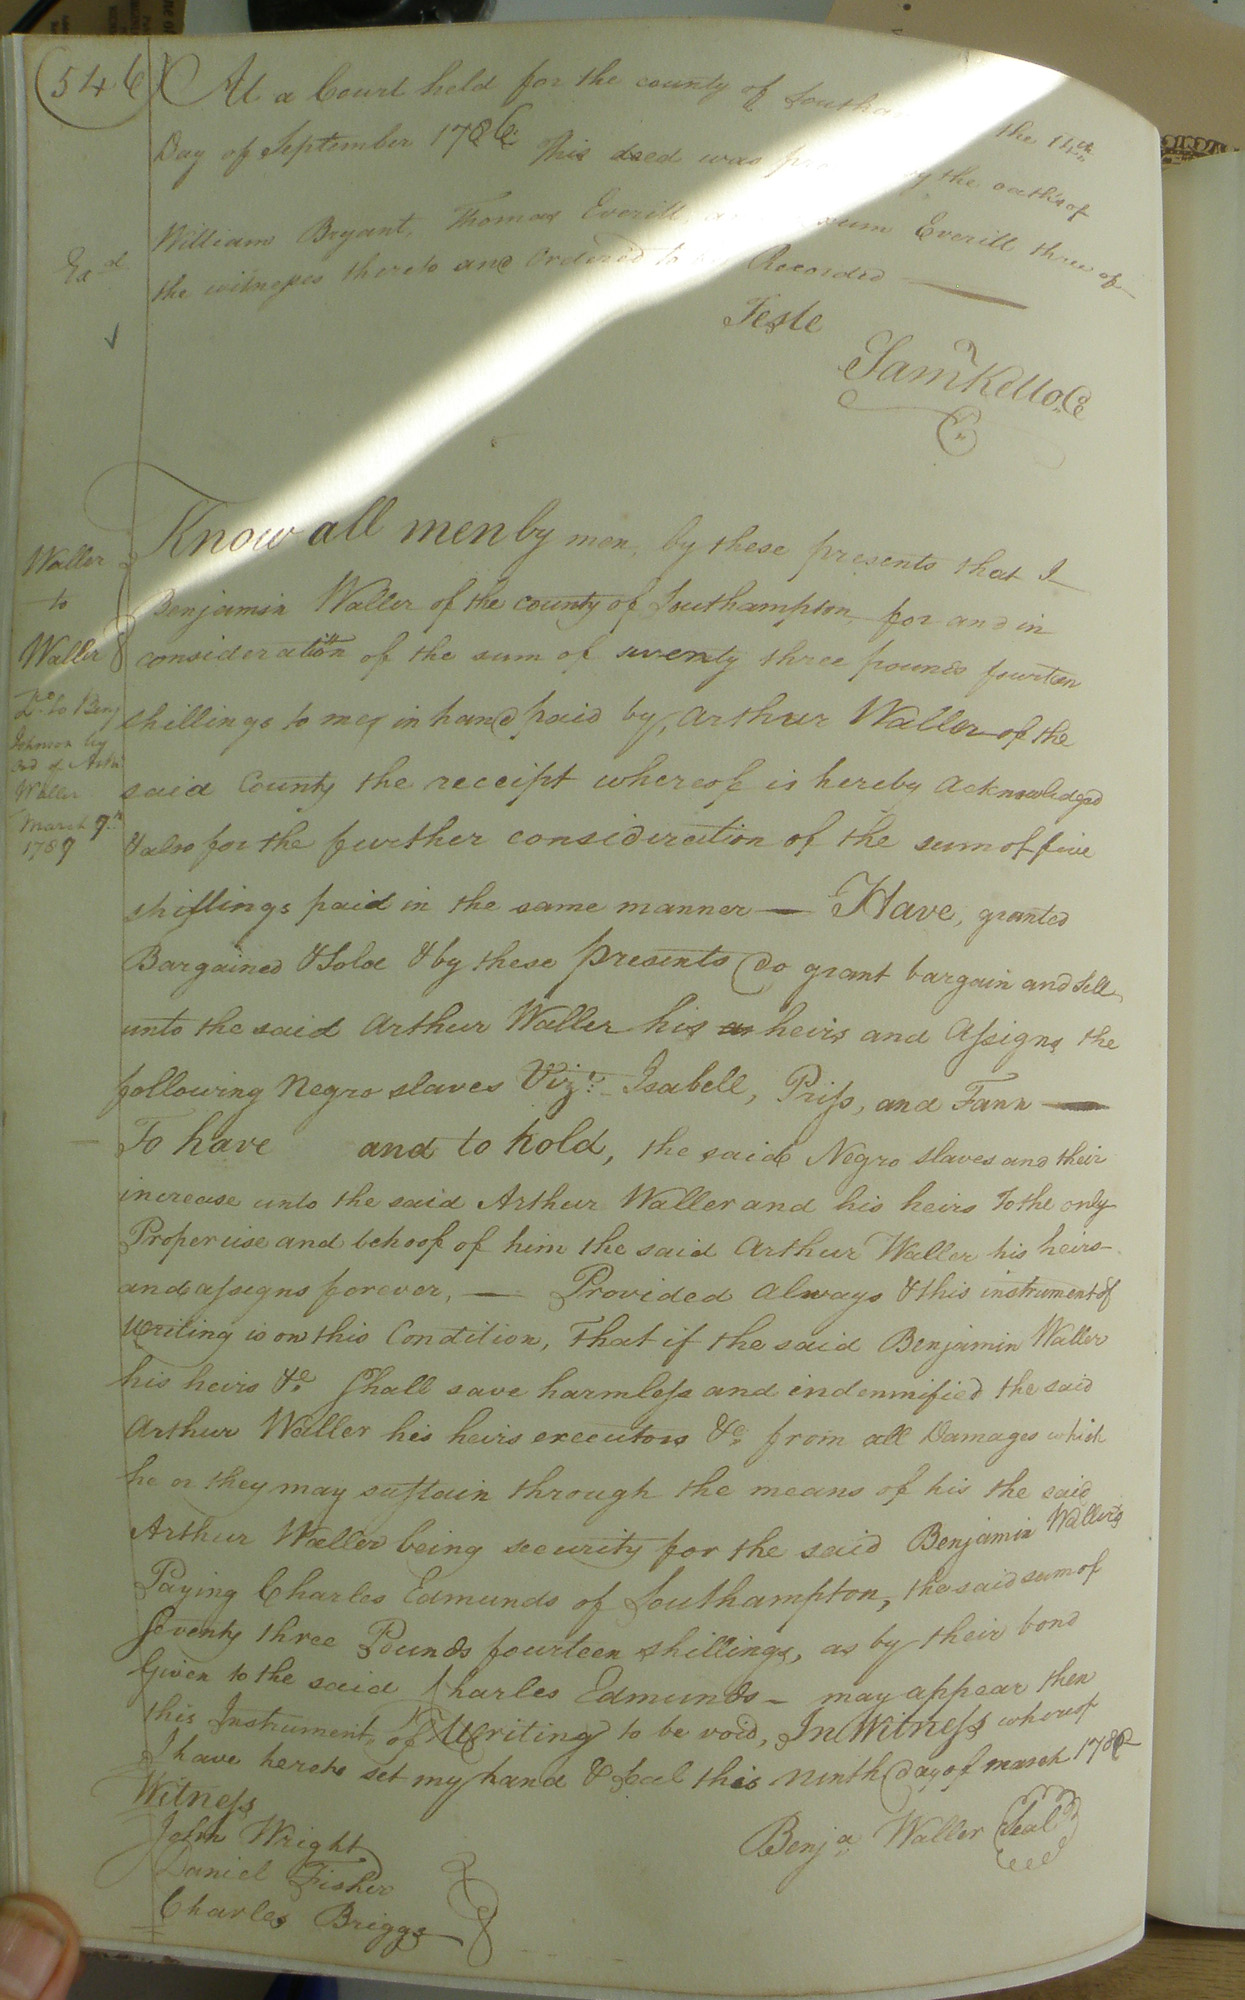 546
At a Court held for the county of Southa the 14th
Day of September 1786. This deed was by the oaths of
William Bryant, Thomas Everill, Everill three of
the witnesses thereto and Ordered to be Recorded
Exd
Teste
Saml Kello C
Waller
to
Waller
Do. to Benj
Johnson by
Ord of Arthr
Waller
March 9th
1789
Know all men by men, by these presents that I
Benjamin Waller of the county of Southampton, for and in
consideration of the sum of seventy three pounds fourteen
shillings to me, in hand paid by, Arthur Waller of the
said County the receipt whereof is hereby Acknowledged
& also for the further consideration of the sum of five
shillings paid in the same manner — Have, granted
Bargained & Sold & by these presents Do grant bargain and Sell
unto the said Arthur Waller his as heirs and Assigns the
following Negro slaves Vizt. Isabell, Priss, and Fann —
To have and to hold, the said Negro slaves and their
increase unto the said Arthur Waller and his heirs To the only
Proper use and behoof of him the said Arthur Waller his heirs
and assigns forever, — Provided Always & this instrument of
Writing is on this Condition, That if the said Benjamin Waller
his heirs &c. Shall save harmless and indemnified the said
Arthur Waller his heirs executors &c. from all Damages which
he or they may sustain through the means of his the said
Arthur Waller being security for the said Benjamin Waller's
Paying Charles Edmunds of Southampton, the said sum of
Seventy three Pounds fourteen shillings, as by their bond
Given to the said Charles Edmunds — may appear then
this Instrument, of Writing to be void, In Witness whereof
I have hereto set my hand & Seal this ninth day of march 1786
Witness
John Wright
Daniel Fisher
Charles Briggs
Benja. Waller Seal